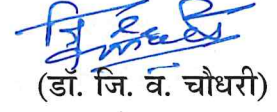 (डॉ. जि. व. चौधरी)